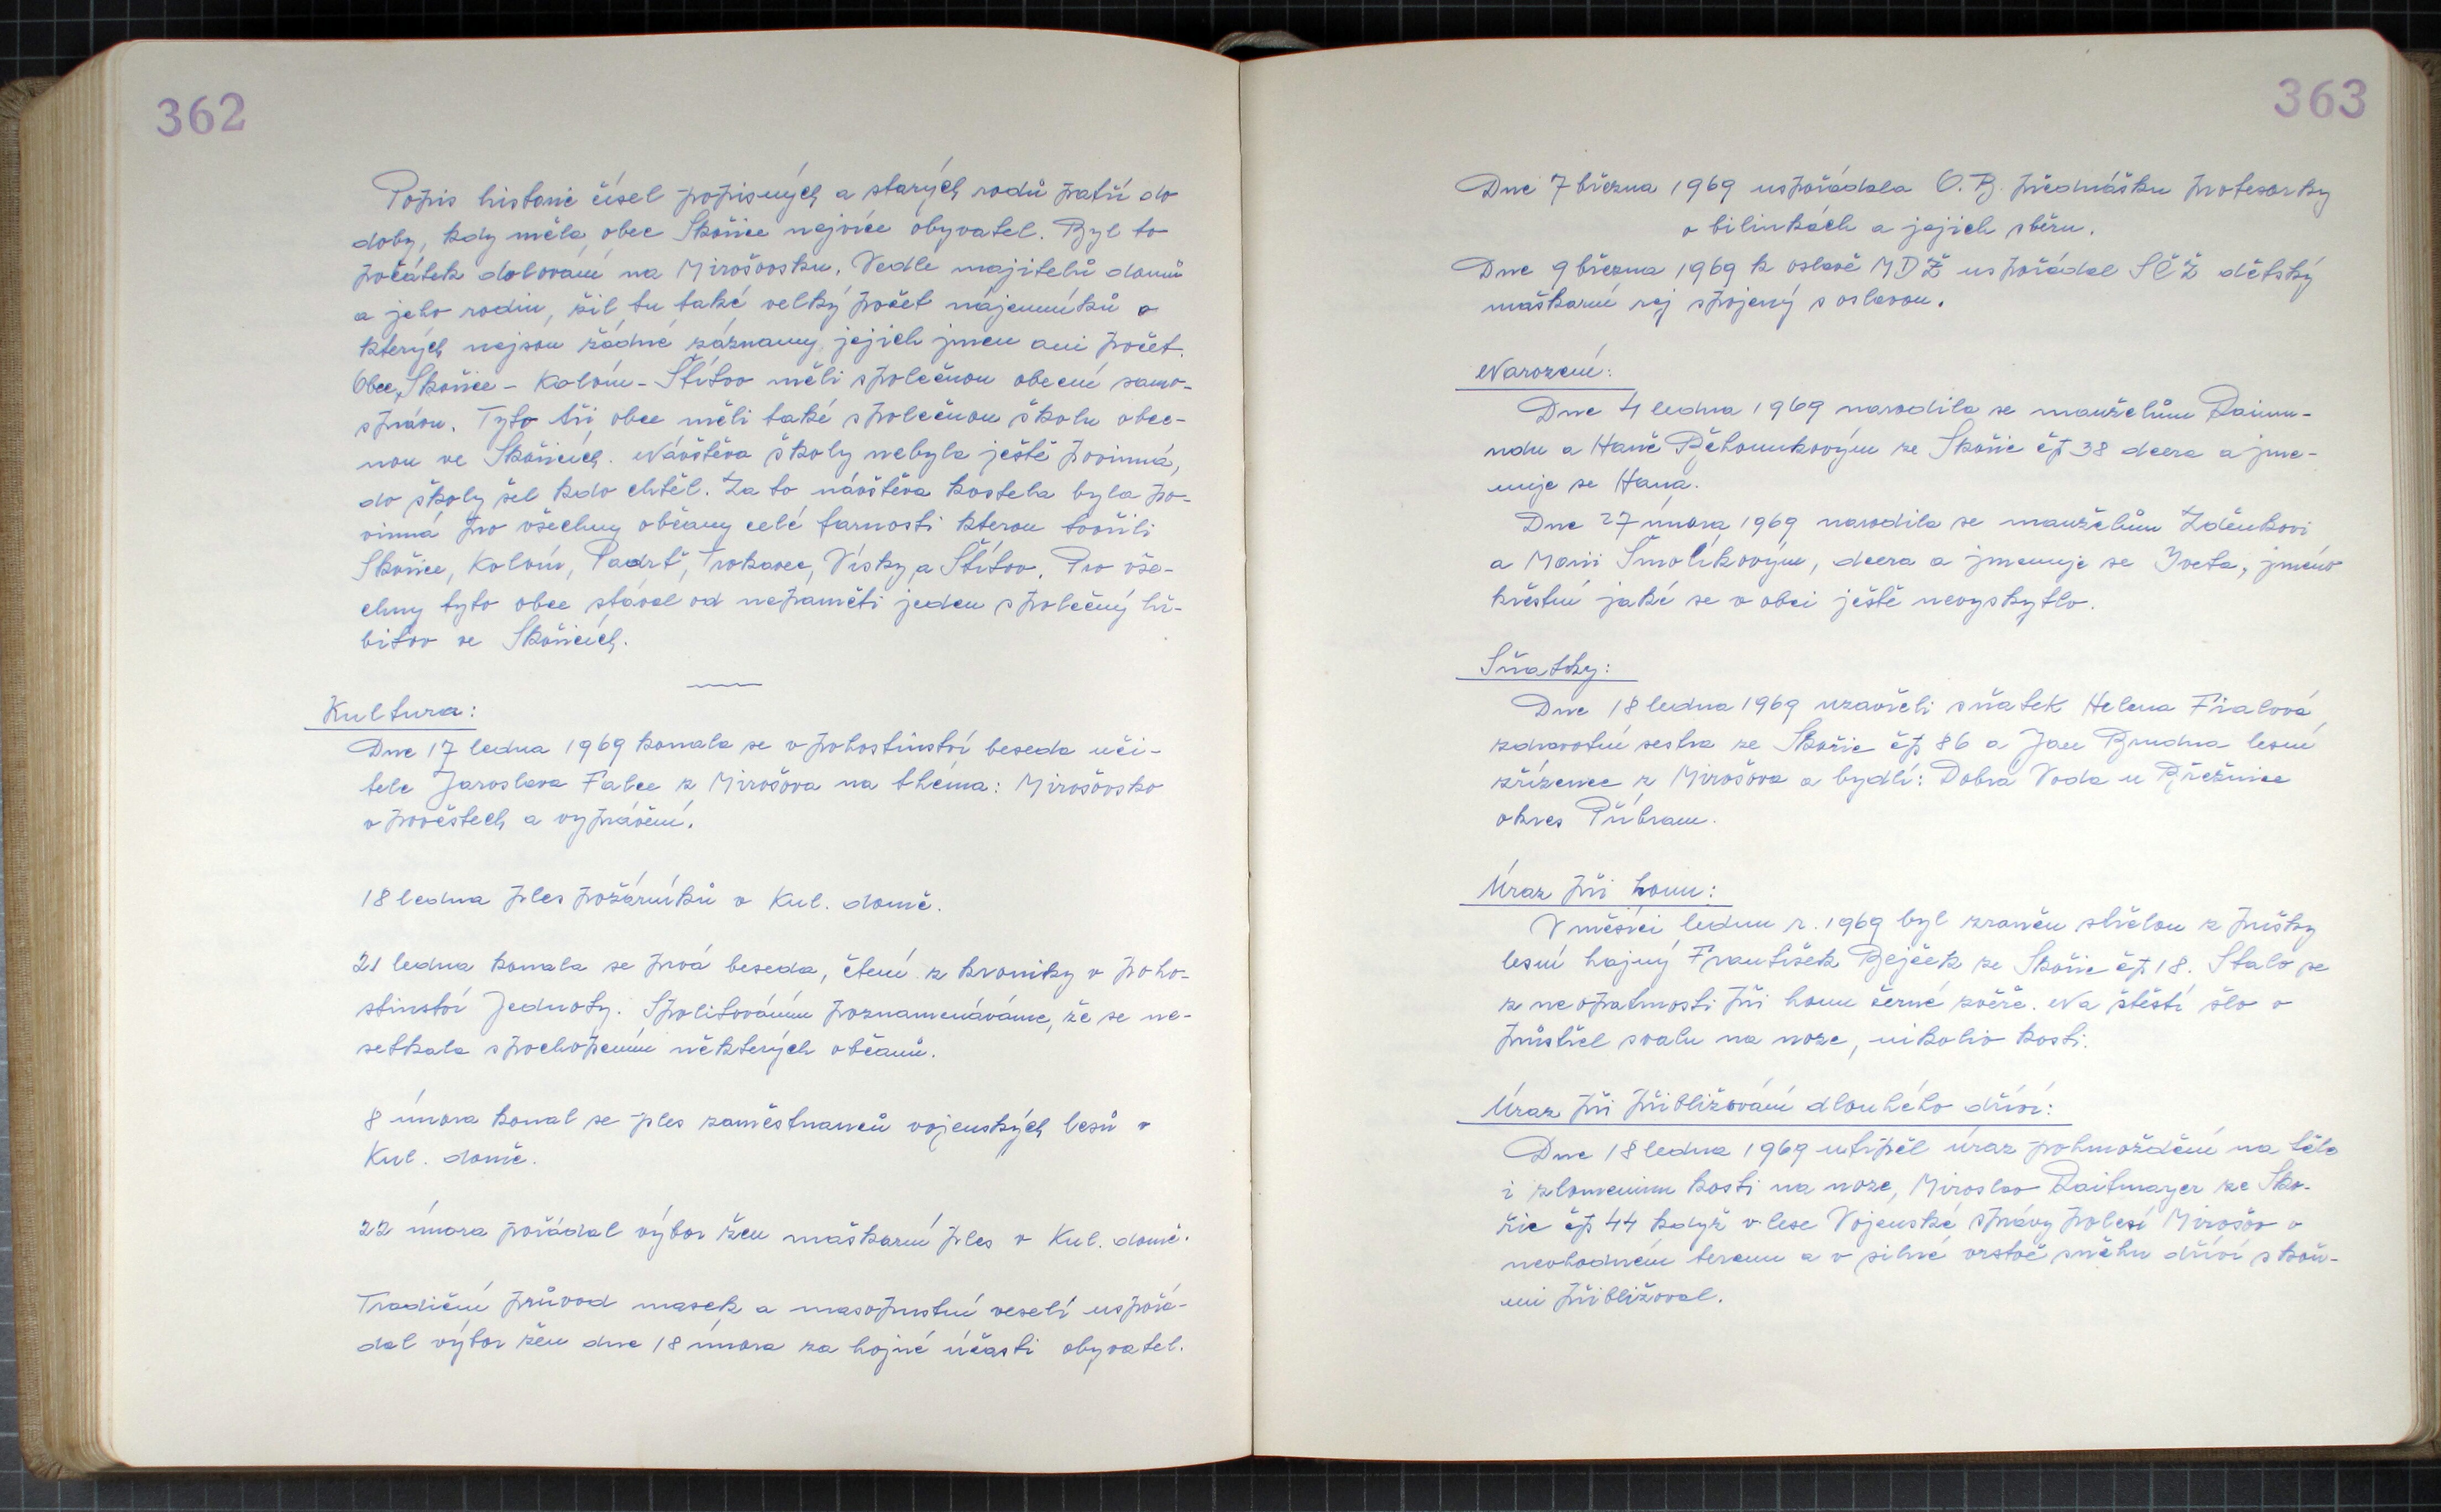 362
Popis historie čísel popisných a starých rodů patří do
doby, kdy měla obec Skořice nejvíce obyvatel. Byl to
počátek dolování na Mirošovsku. Vedle majitelů domů
a jeho rodin, žil tu také velký počet nájemníků o
kterých nejsou žádné záznamy jejich jmen ani počet.
Obec Skořice - Kolvín - Štítov měli společnou obecní samo-
správu. Tyto tři obce měli také společnou školu obec-
nou ve Skořicích. Návštěva školy nebyla ještě povinná,
do školy šel kdo chtěl. Za to návštěva kostela byla po-
vinná pro všechny občany celé farnosti kterou tvořili
Skořice, Kolvín, Padrť, Trokavec, Vísky, a Štítov. Pro vše-
chny tyto obce stával od nepaměti jeden společný hř-
bitov ve Skořicích.
Kultura:
Dne 17 ledna 1969 konala se v pohostinství beseda uči-
tele Jaroslava Falce z Mirošova na théma: Mirošovsko
v pověstech a vyprávění.
18 ledna ples požárníků v Kul. domě.
21 ledna konala se prvá beseda, čtení z kroniky v poho-
stinství Jednoty. S politováním poznamenáváme, že se ne-
setkala s pochopením některých občanů.
8 února konal se ples zaměstnanců vojenských lesů v
Kul. domě.
22 února pořádal výbor žen maškarní ples v Kul. domě.
Tradiční průvod masek a masopustní veselí uspořá-
dal výbor žen dne 18 února za hojné účasti obyvatel.
363
Dne 7 března 1969 uspořádala O. B. přednášku profesorky
o bilinkách a jejich sběru.
Dne 9 března 1969 k oslavě MDŽ uspořádal SČŽ dětský
maškarní rej spojený s oslavou.
Narození:
Dne 4 ledna 1969 narodila se manželům Raimu-
ndu a Haně Běhounkovým ze Skořic čp 38 dcera a jme-
nuje se Hana.
Dne 27 února 1969 narodila se manželům Zdeňkovi
a Marii Smolíkovým, dcera a jmenuje se Iveta, jméno
křestní jaké se v obci ještě nevyskytlo.
Sňatky:
Dne 18 ledna 1969 uzavřeli sňatek Helena Fialová
zdravotní sestra ze Skořic čp 86 a Jan Brudna lesní
zřízenec z Mirošova a bydlí: Dobra Voda u Březnice
okres Příbram.
Úraz při honu:
V měsíci lednu r. 1969 byl zraněn střelou z pušky
lesní hajný František Bejček ze Skořic čp 18. Stalo se
z neopatrnosti při honu černé zvěře. Na štěstí šlo o
průstřel svalu na noze, nikoliv kosti.
Úraz při přibližování dlouhého dříví:
Dne 18 ledna 1969 utrpěl úraz pohmoždění na těle
i zlomeninu kosti na noze, Miroslav Raitmayer ze Sko-
řic čp 44 když v lese Vojenské správy polesí Mirošov v
nevhodném terenu a v silné vrstvě sněhu dříví s koň-
mi přibližoval.